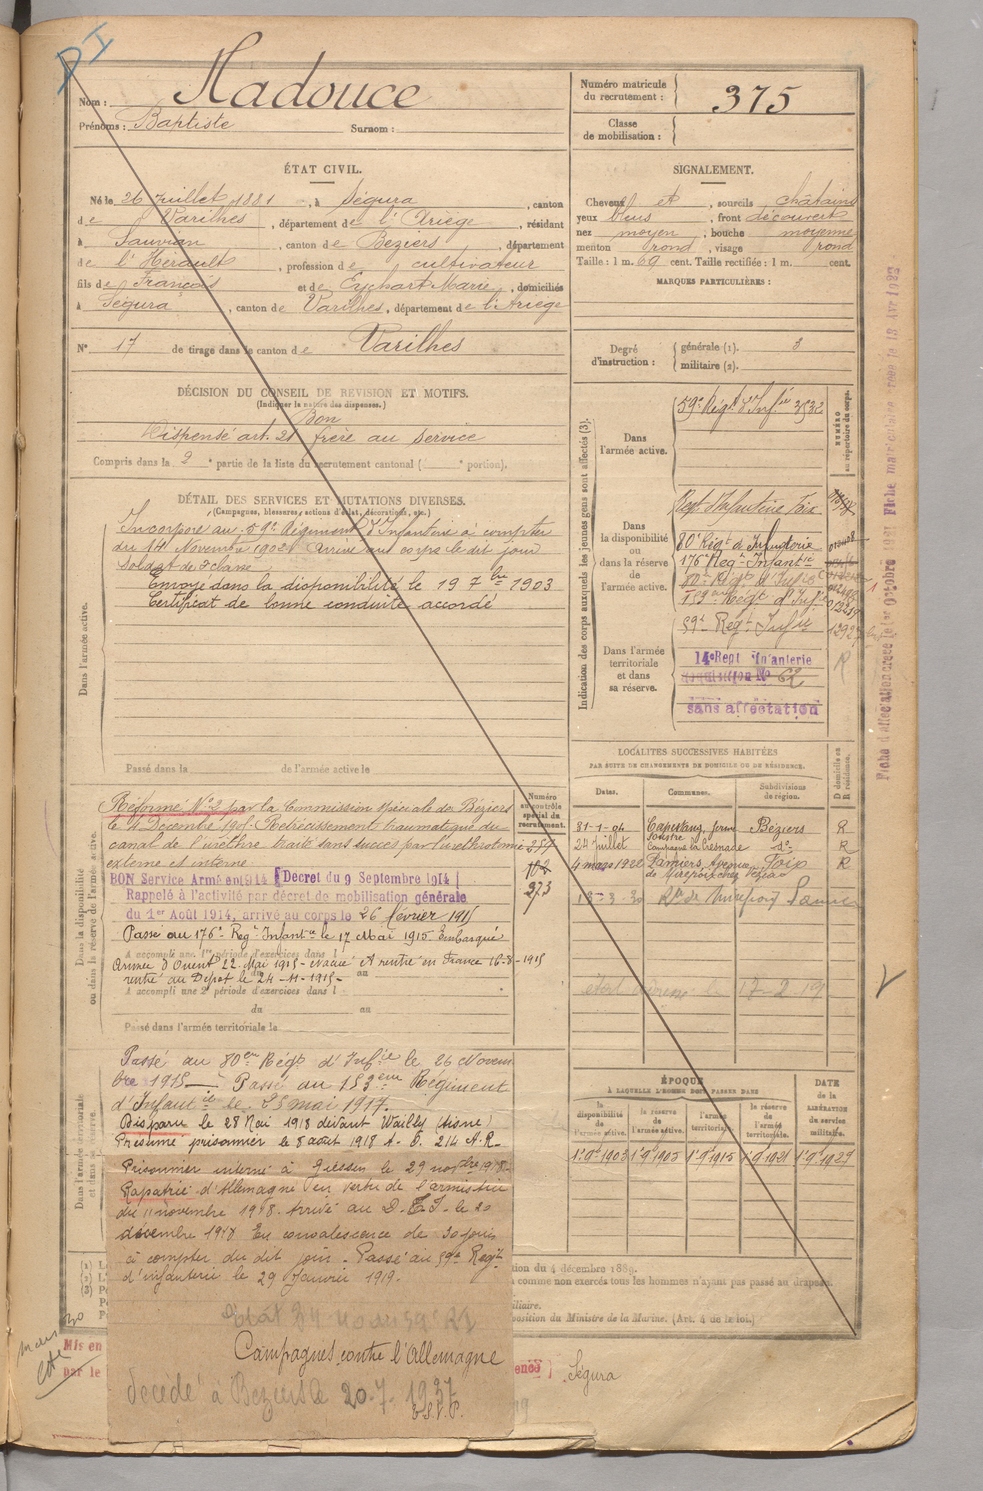 Nom : Madouce
Prénoms : Baptiste Surnom :
Numéro matricule du recrutement : 375
Classe de mobilisation :
ÉTAT CIVIL.
Né le 26 Juillet 1881, à Ségura, canton
de Varilhes, département de l'Ariège, résidant
à Sauvian, canton de Béziers, département
de l'Hérault, profession de cultivateur
fils de François et de Eychart Marie, domiciliés
à Ségura, canton de Varilhes, département de l'Ariège
N° 17 de tirage dans le canton de Varilhes
SIGNALEMENT.
Cheveux et, sourcils châtains
yeux bleus, front découvert
nez moyen, bouche moyenne
menton rond, visage rond
Taille : 1 m. 69 cent. Taille rectifiée : 1 m. cent.
MARQUES PARTICULIÈRES :
Degré d'instruction : générale (1). 3
militaire (2).
DÉCISION DU CONSEIL DE REVISION ET MOTIFS.
(Indiquer la nature des dispenses.)
Bon
Dispensé art. 21 frère au service
Compris dans la 2e partie de la liste du recrutement cantonal ( e portion).
DÉTAIL DES SERVICES ET MUTATIONS DIVERSES.
(Campagnes, blessures, actions d'éclat, décorations, etc.)
Dans l'armée active.
Incorporé au 59e Régiment d'Infanterie à compter
du 14 Novembre 1902 Arrivé au corps le dit jour
Soldat de 2e classe
Envoyé dans la disponibilité le 19 7bre 1903
Certificat de bonne conduite accordé
Passé dans la de l'armée active le
Indication des corps auxquels les jeunes gens sont affectés (3).
NUMÉRO au répertoire du corps.
Dans l'armée active.
59e Régt d'Infie 3532
Dans la disponibilité ou dans la réserve de l'armée active.
Regt d'Infanterie Foix
80e Régt d'Infanterie
176e Regt Infantie
80e Régt d'Infie
Régt d'Infie
59e Regt Infie
Dans l'armée territoriale et dans sa réserve.
14e Regt Infanterie
62
sans affectation
R
Fiche d'affectation
Fiche matricule
Dans la disponibilité ou dans la réserve de l'armée active.
Numéro au contrôle spécial du recrutement.
Réformé N° 2 par la Commission spéciale de Béziers
le 11 Décembre 190 Rétrécissement traumatique du
canal de l'urèthre traité sans succès par l'uréthrotomie
externe et interne
102
273
BON Service Armé en 1914 Décret du 9 Septembre 1914
Rappelé à l'activité par décret de mobilisation générale
du 1er Août 1914, arrivé au corps le 26 février 1915
Passé au 176e Regt Infantie le 17 Mai 1915 Embarqué
A accompli une 1re période d'exercices dans l
Armée d'Orient 22 Mai 1915 - Evacué A rentré en France 16-8-1915
rentré au Dépôt le 24-11-1915
A accompli une 2e période d'exercices dans l
du au
Passé dans l'armée territoriale le
LOCALITÉS SUCCESSIVES HABITÉES
PAR SUITE DE CHANGEMENTS DE DOMICILE OU DE RÉSIDENCE.
Dates. Communes. Subdivisions de région. D domicile ou R résidence.
31-1-04 Capestang, ferme Béziers R
24 juillet Campagne la do R
4 mars 1922 Pamiers, Avenue de Mirepoix chez Foix R
18-3-30 Rte de Mirepoix Pamiers
17-2-19
Dans l'armée territoriale et dans sa réserve.
Passé au 80eme Régt d'Infie le 26 Novem
bre 1915 Passé au 153eme Régiment
d'Infantie le 25 mai 1917.
Disparu le 28 Mai 1918 devant Wailly (Aisne)
Présumé prisonnier le 8 août 1918
Prisonnier interné à Giessen le 29 1918
Rapatrié d'Allemagne en vertu de l'armistice
du 11 novembre 1918. Arrivé au D. le 20
décembre 1918 En convalescence de 30 jours
à compter du dit jour. Passé au 59e Regt
d'infanterie le 29 Janvier 1919.
Campagnes contre l'Allemagne
Décédé à Béziers le 20-7-1937
ÉPOQUE
À LAQUELLE L'HOMME DOIT PASSER DANS
DATE de la LIBÉRATION du service militaire.
la disponibilité de l'armée active. la réserve de l'armée active. l'armée territoriale. la réserve de l'armée territoriale.
1er 9bre 1903 1er 9bre 1905 1er 9bre 1915 1er 9bre 1921 1er 9bre 1927
tion du 4 décembre 1889.
comme non exercés tous les hommes n'ayant pas passé au drapeau.
iliaire.
position du Ministre de la Marine. (Art. 4 de la loi.)
Mis en
par le
Ségura